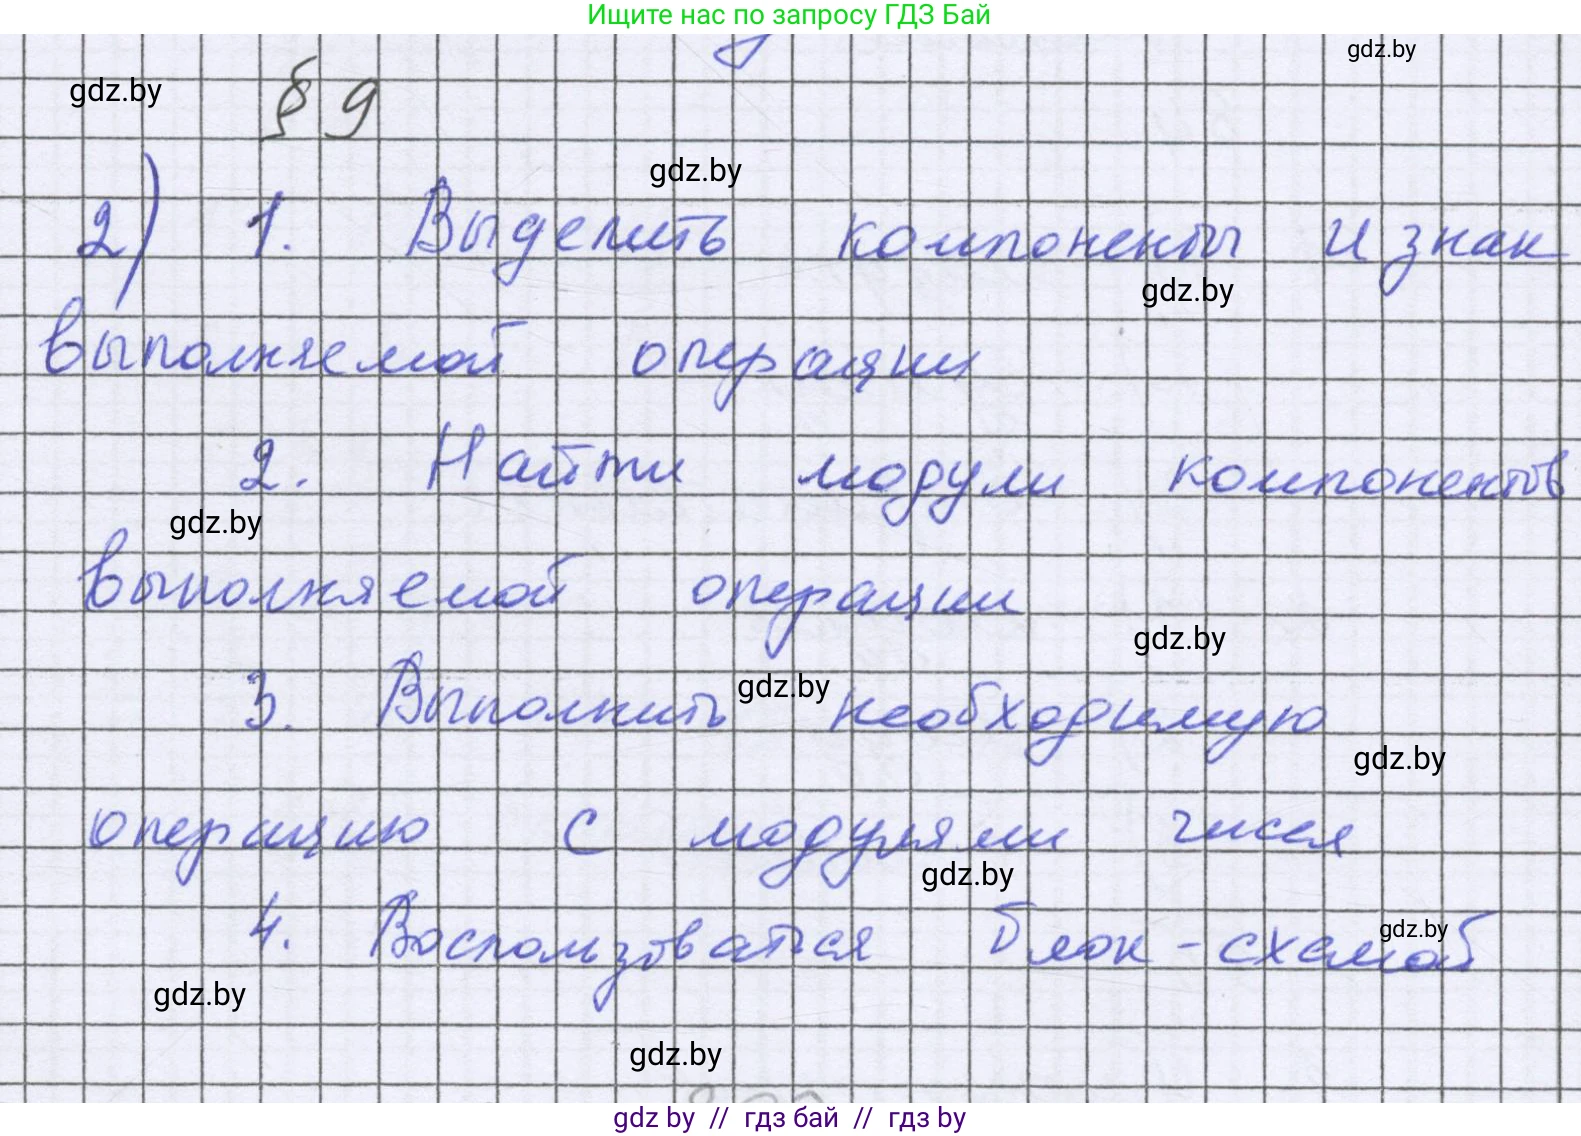 Ищите нас по запросу ГДЗ Бай
gdz.by
gdz.by
§ 9
gdz.by
2) 1. Выделить компоненты и знак
gdz.by
выполняемой операции
2. Найти модули компонентов
gdz.by
выполняемой операции
gdz.by
gdz.by
3. Выполнить необходимую
gdz.by
операцию с модулями чисел
gdz.by
4. Воспользоваться блок-схемой
gdz.by
gdz.by
gdz.by
gdz by // гдз бай // гдз by